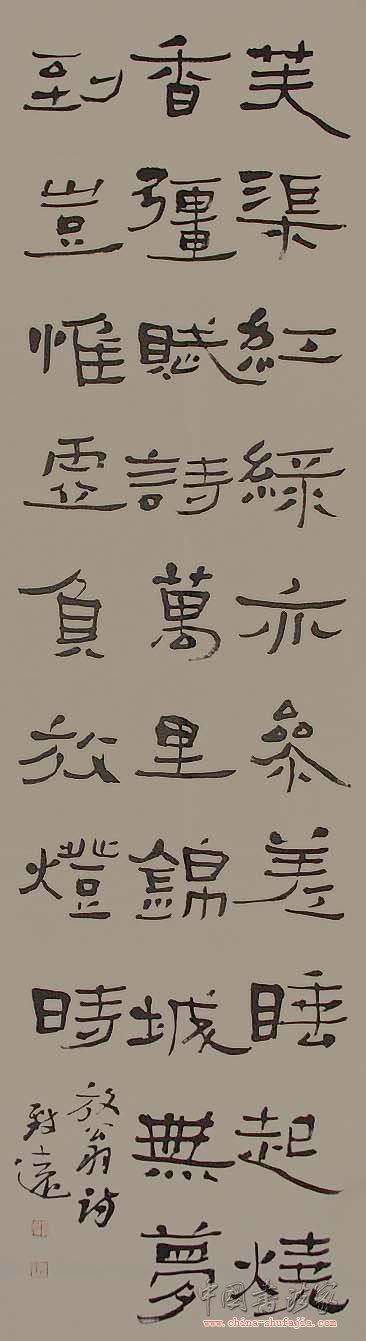 芙渠紅綠亦參差睡起燒
香彊賦詩萬里錦城無夢
到豈惟虛負放燈時
放翁詩
致遠
中国書法家
www.china-shufajia.com